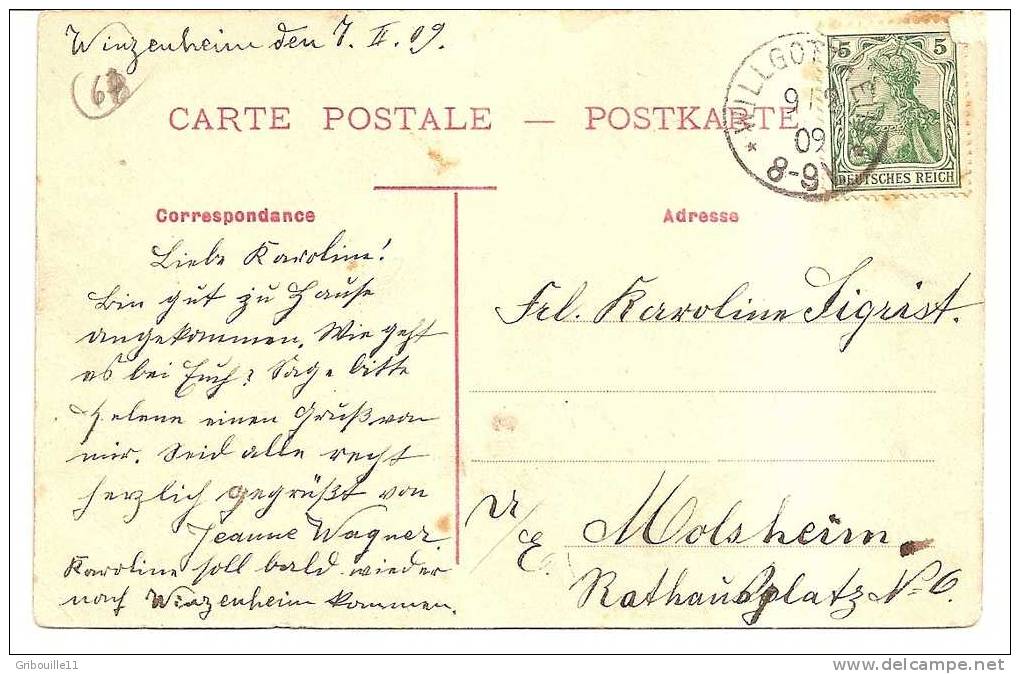 Winzenheim den 7. II. 09.
68
CARTE POSTALE — POSTKARTE
* WILLGOTTHEIM *
9 2
09
8-9V
5 5
DEUTSCHES REICH
Correspondance
Liebe Karoline!
Bin gut zu Hause
angekommen. Wie geht
es bei Euch? Sage bitte
Helene einen Gruß von
mir. Seid alle recht
herzlich gegrüßt von
Jeanne Wagner
Karoline soll bald wieder
nach Winzenheim kommen.
Adresse
Frl. Karoline Sigrist.
Molsheim
U/E.
Rathausplatz No 6.
Gribouille11
www.delcampe.net